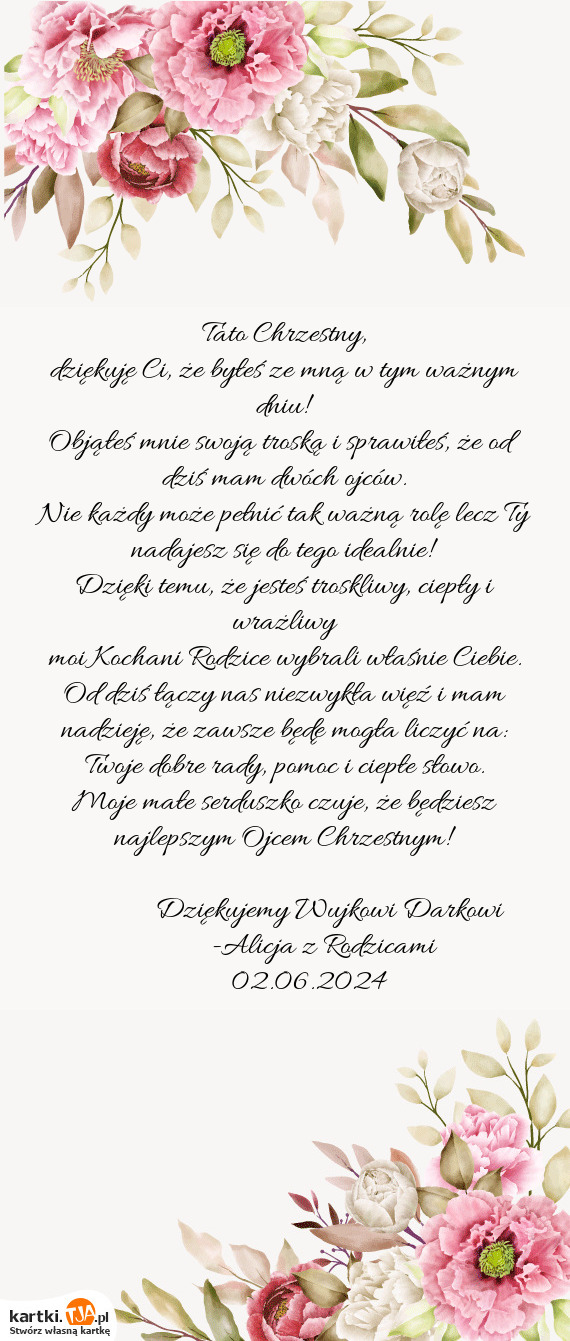 Tato Chrzestny,
dziękuję Ci, że byłeś ze mną w tym ważnym
dniu!
Objąłeś mnie swoją troską i sprawiłeś, że od
dziś mam dwóch ojców.
Nie każdy może pełnić tak ważną rolę lecz Ty
nadajesz się do tego idealnie!
Dzięki temu, że jesteś troskliwy, ciepły i
wrażliwy
moi Kochani Rodzice wybrali właśnie Ciebie.
Od dziś łączy nas niezwykła więź i mam
nadzieję, że zawsze będę mogła liczyć na:
Twoje dobre rady, pomoc i ciepłe słowo.
Moje małe serduszko czuje, że będziesz
najlepszym Ojcem Chrzestnym!
Dziękujemy Wujkowi Darkowi
-Alicja z Rodzicami
02.06.2024
kartki.TJA.pl
Stwórz własną kartkę